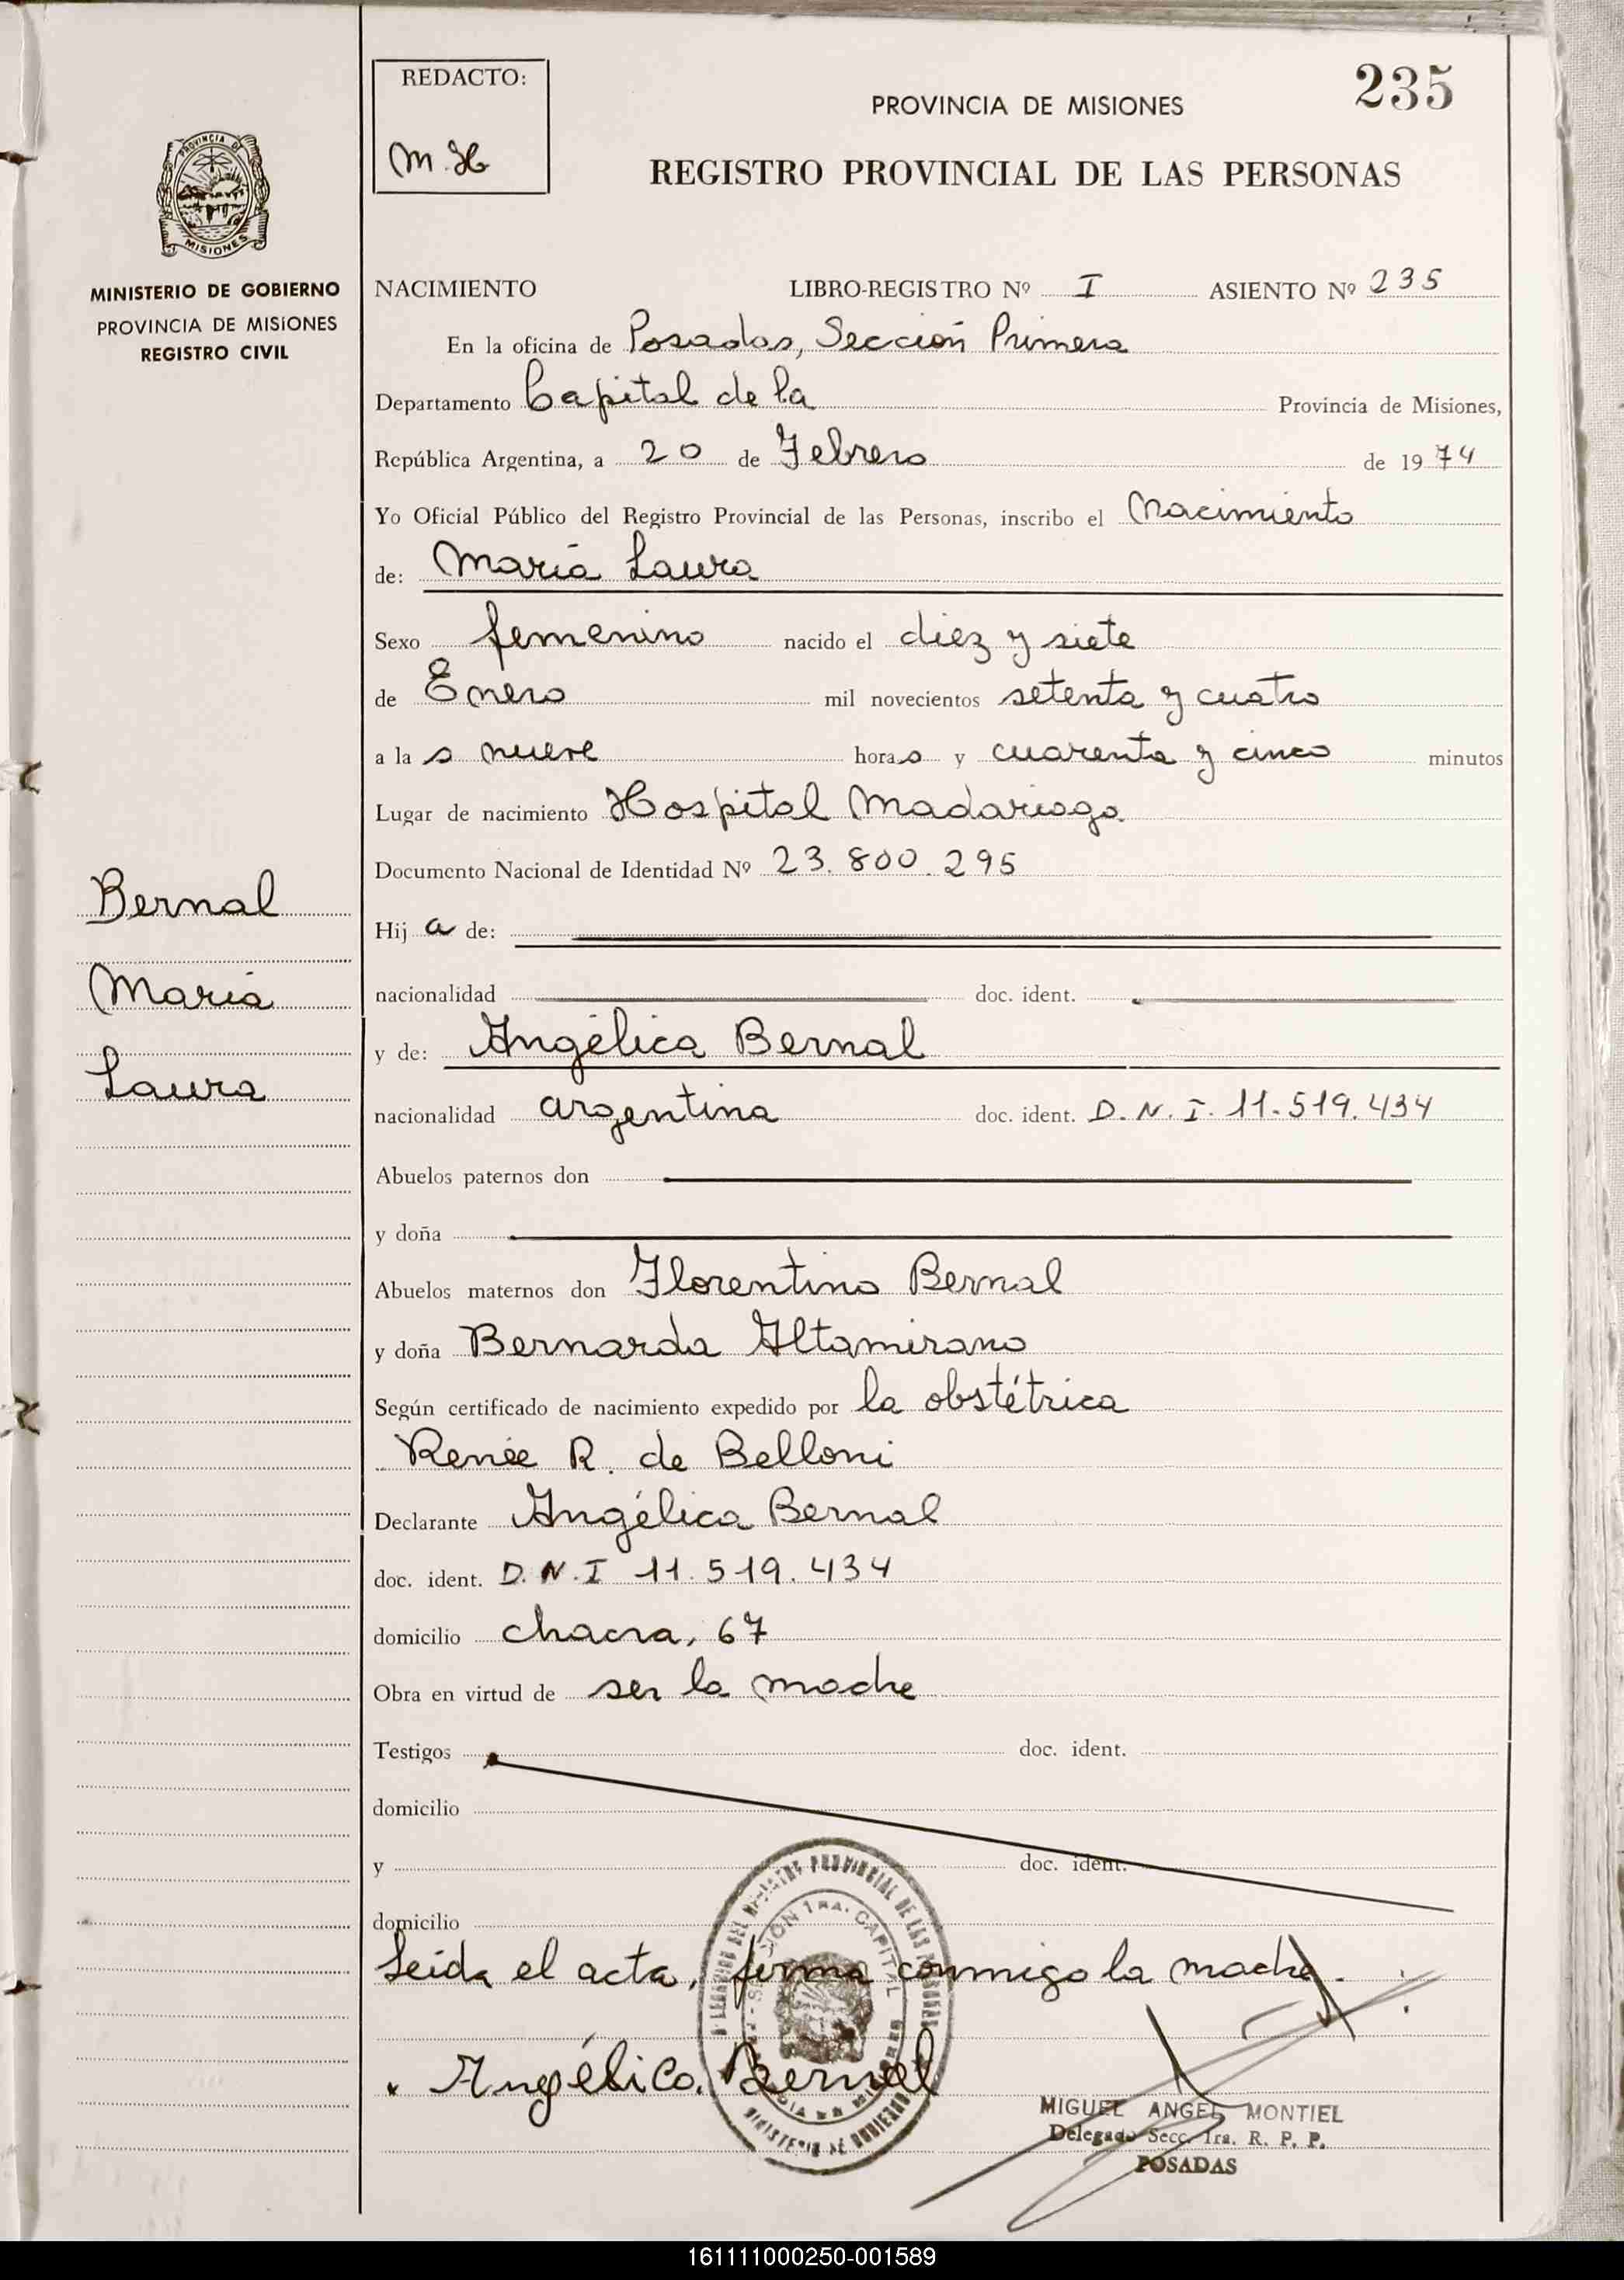 REDACTO:
M. H
PROVINCIA DE MISIONES
235
REGISTRO PROVINCIAL DE LAS PERSONAS
PROVINCIA DE
MISIONES
MINISTERIO DE GOBIERNO
PROVINCIA DE MISIONES
REGISTRO CIVIL
Bernal
Maria
Laura
NACIMIENTO LIBRO-REGISTRO Nº I ASIENTO Nº 235
En la oficina de Posadas, Sección Primera
Departamento Capital de la Provincia de Misiones,
República Argentina, a 20 de Febrero de 1974
Yo Oficial Público del Registro Provincial de las Personas, inscribo el Nacimiento
de: Maria Laura
Sexo femenino nacido el diez y siete
de Enero mil novecientos setenta y cuatro
a las nueve horas y cuarenta y cinco minutos
Lugar de nacimiento Hospital Madariaga
Documento Nacional de Identidad Nº 23.800.295
Hija de:
nacionalidad doc. ident.
y de: Angélica Bernal
nacionalidad argentina doc. ident. D. N. I. 11.519.434
Abuelos paternos don
y doña
Abuelos maternos don Florentino Bernal
y doña Bernarda Altamirano
Según certificado de nacimiento expedido por la obstétrica
Renée R. de Belloni
Declarante Angélica Bernal
doc. ident. D. N. I 11.519.434
domicilio chacra, 67
Obra en virtud de ser la madre
Testigos doc. ident.
domicilio
y doc. ident.
domicilio
Leida el acta, firma conmigo la madre.
Angélica Bernal
MIGUEL ANGEL MONTIEL
Delegado Secc. 1ra. R. P. P.
POSADAS
161111000250-001589